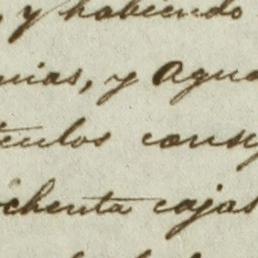 , y habiendo
nias, y Agua
tculos consy
ochenta cajas